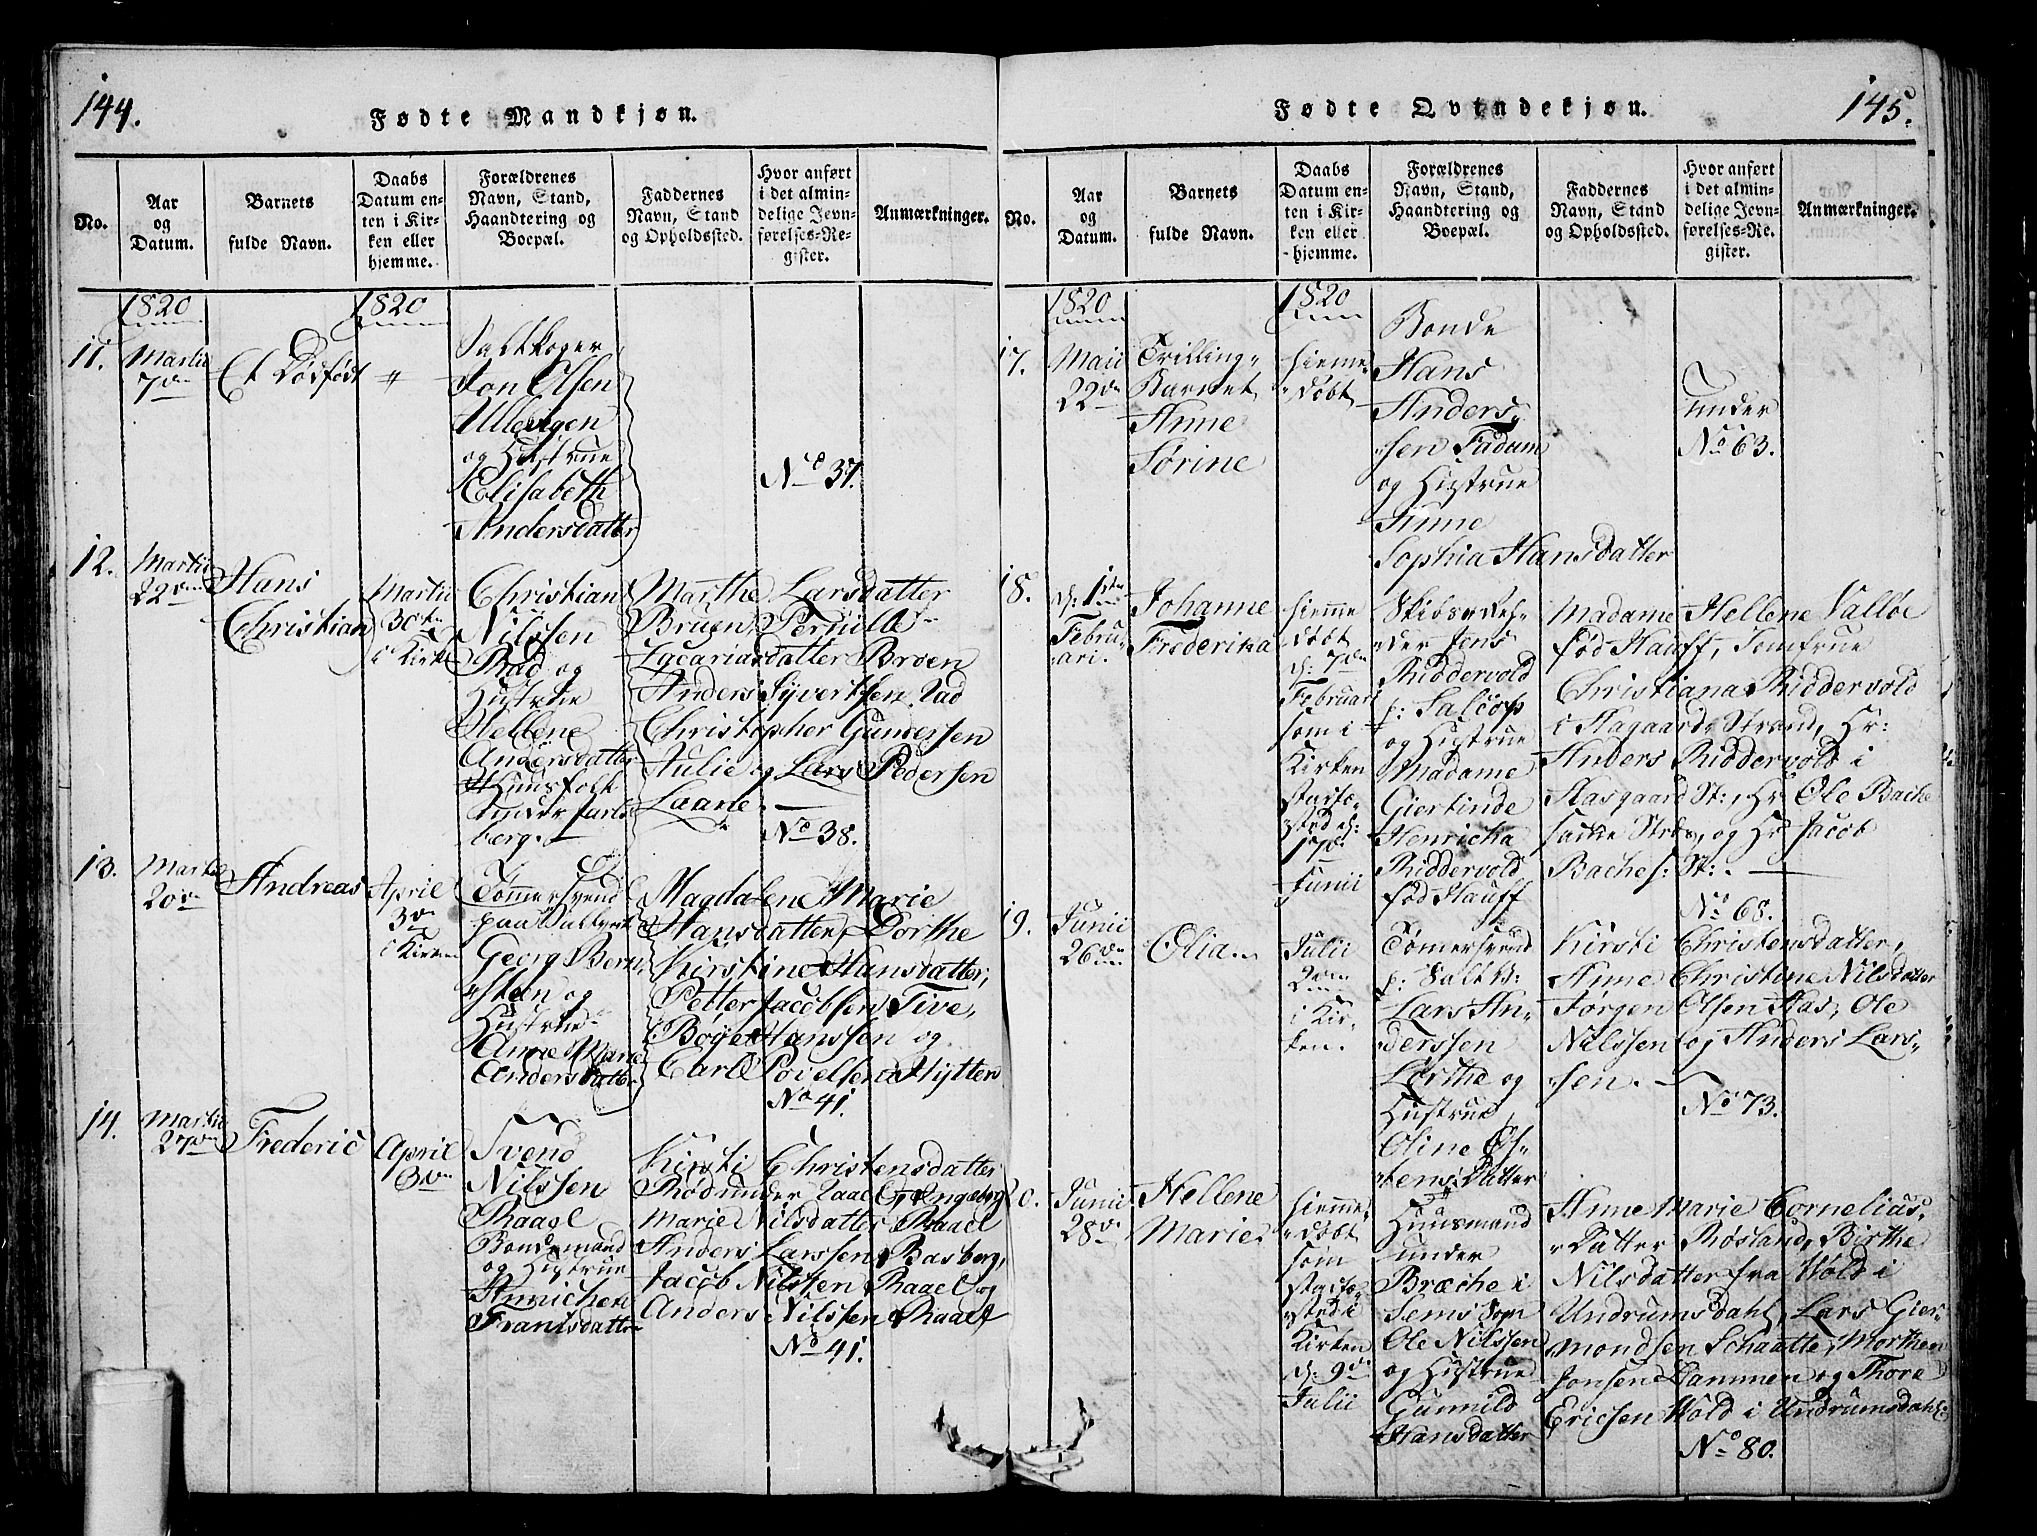 144.
Fødte Mandkjøn.
No.
Aar
og
Datum.
Barnets
fulde Navn.
Daabs
Datum en-
ten i Kir-
ken eller
hjemme.
Forældrenes
Navn, Stand,
Haandtering og
Boepæl.
Faddernes
Navn, Stand
og Opholdssted.
Hvor anført
i det almin-
delige Jevn-
førelses-Re-
gister.
Anmærkninger.
1820
1820
11.
Martii
7de
Et Dødfødt
"
Saltkoger
Jon Olsen
Ullevigen
og Hustrue
Elisabeth
Andersdatter
No 37.
12.
Martii
22de
Hans
Christian
Martii
30te
i Kirk
Christian
Nilssen
Rad og
Hustrue
Hellene
Andersdatter
Huusfolk
under Jarls
berg.
Marthe Larsdatter
Bruen, Pernille
Zacariasdatter Broen
Anders Syvertsen Rad
Christopher Gundersen
Julie og Lars Pedersen
Laane.
No 38.
13.
Martii
20de
Andreas
April
3de
i Kirken
Tømmersvend
paa Saltværk
Georg Bernt
sten og
Hustrue
Anne Marie
Andersdatter
Magdalene Marie
Hansdatter, Dorthe
Kirstine Hansdatter,
Petter Jacobsen Tive,
Børge Hanssen og
Carl Povelsen Hytten
No 41.
14.
Martii
27de
Frederic
April
3de
Svend
Nilssen
Raael
Bondemand
og Hustrue
Annichen
Frantsdatter
Kirsti Christensdatter
Rød under Raael, Ingeborg
Marie Nilsdatter Raael
Anders Larssen Basberg,
Jacob Nilssen Raael og
Anders Nilssen Raael
No 41.
145.
Fødte Qvindekjøn.
No.
Aar
og
Datum.
Barnets
fulde Navn.
Daabs
Datum en-
ten i Kir-
ken eller
hjemme.
Forældrenes
Navn, Stand,
Haandtering og
Boepæl.
Faddernes
Navn, Stand
og Opholdssted.
Hvor anført
i det almin-
delige Jevn-
førelses-Re-
gister.
Anmærkninger.
1820
1820
17.
Maii
22de
Trilling-
Barnet
Anne
Sørine
hieme-
døbt
Bonde
Hans
Anders-
sen Fadum
og Hustrue
Anne
Sophia Hansdatter
under
No 63.
18.
d: 1ste
Febru-
ari.
Johanne
Frederika
hieme
døbt
d: 7de
Februari
som i
Kirken
stadfæ-
sted d:
17de
Junii
Skibs-Rhe-
der Jens
Riddervold
p:
og Hustrue
Madame
Giertinde
Henricka
Riddervold
fød Hauff
Madame Hellene Valløe
fød Hauff, Jomfrue
Christiana Riddervold
i Aagaards Strand, Hr:
Anders Riddervold i
Aasgaard St:, Hr Ole Bache
og Hr Jacob
Baches: St:.
No 68.
19.
Junii
26de
Olia
Julii
2den
i Kir-
ken.
Tømersvend
p: Salt V:
Lars An-
derssen
Lørthe og
Hustrue
Oline Øs-
tensDatter
Kirsti Christensdatter,
Anne Christine Nilsdatter
Jørgen Olsen Aas, Ole
Nilssen og Anders Lars-
sen.
No 73.
20.
Junii
28de
Hellene
Marie
hieme-
døbt
som
stadfæ-
sted i
Kirken
d: 9de
Julii
Huusmand
under
Bræche i
Sems Sogn
Ole Nilssen
og Hustrue
Gunnild
Hansdatter
Anne Marie Cornelius-
Datter Røsland, Birthe
Nilsdatter fra Wold i
Undrumsdahl, Lars Gier-
mondsen Schaatte, Morthen
Jonsen Dammen og Thore
Ericsen Wold i Undrumsdahl
No 80.